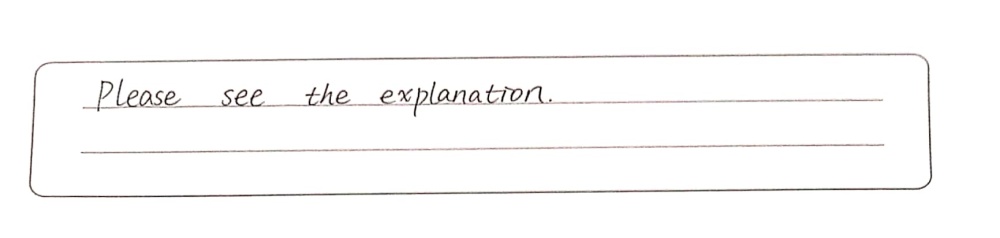 Please see the explanation.